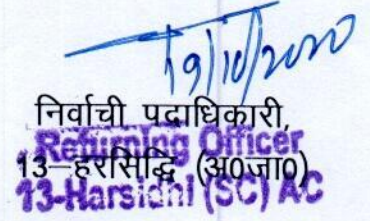 19/10/2020
निर्वाची पदाधिकारी,
Returning Officer
13–हरसिद्धि (अ0जा0)
13-Harsidhi (SC) AC